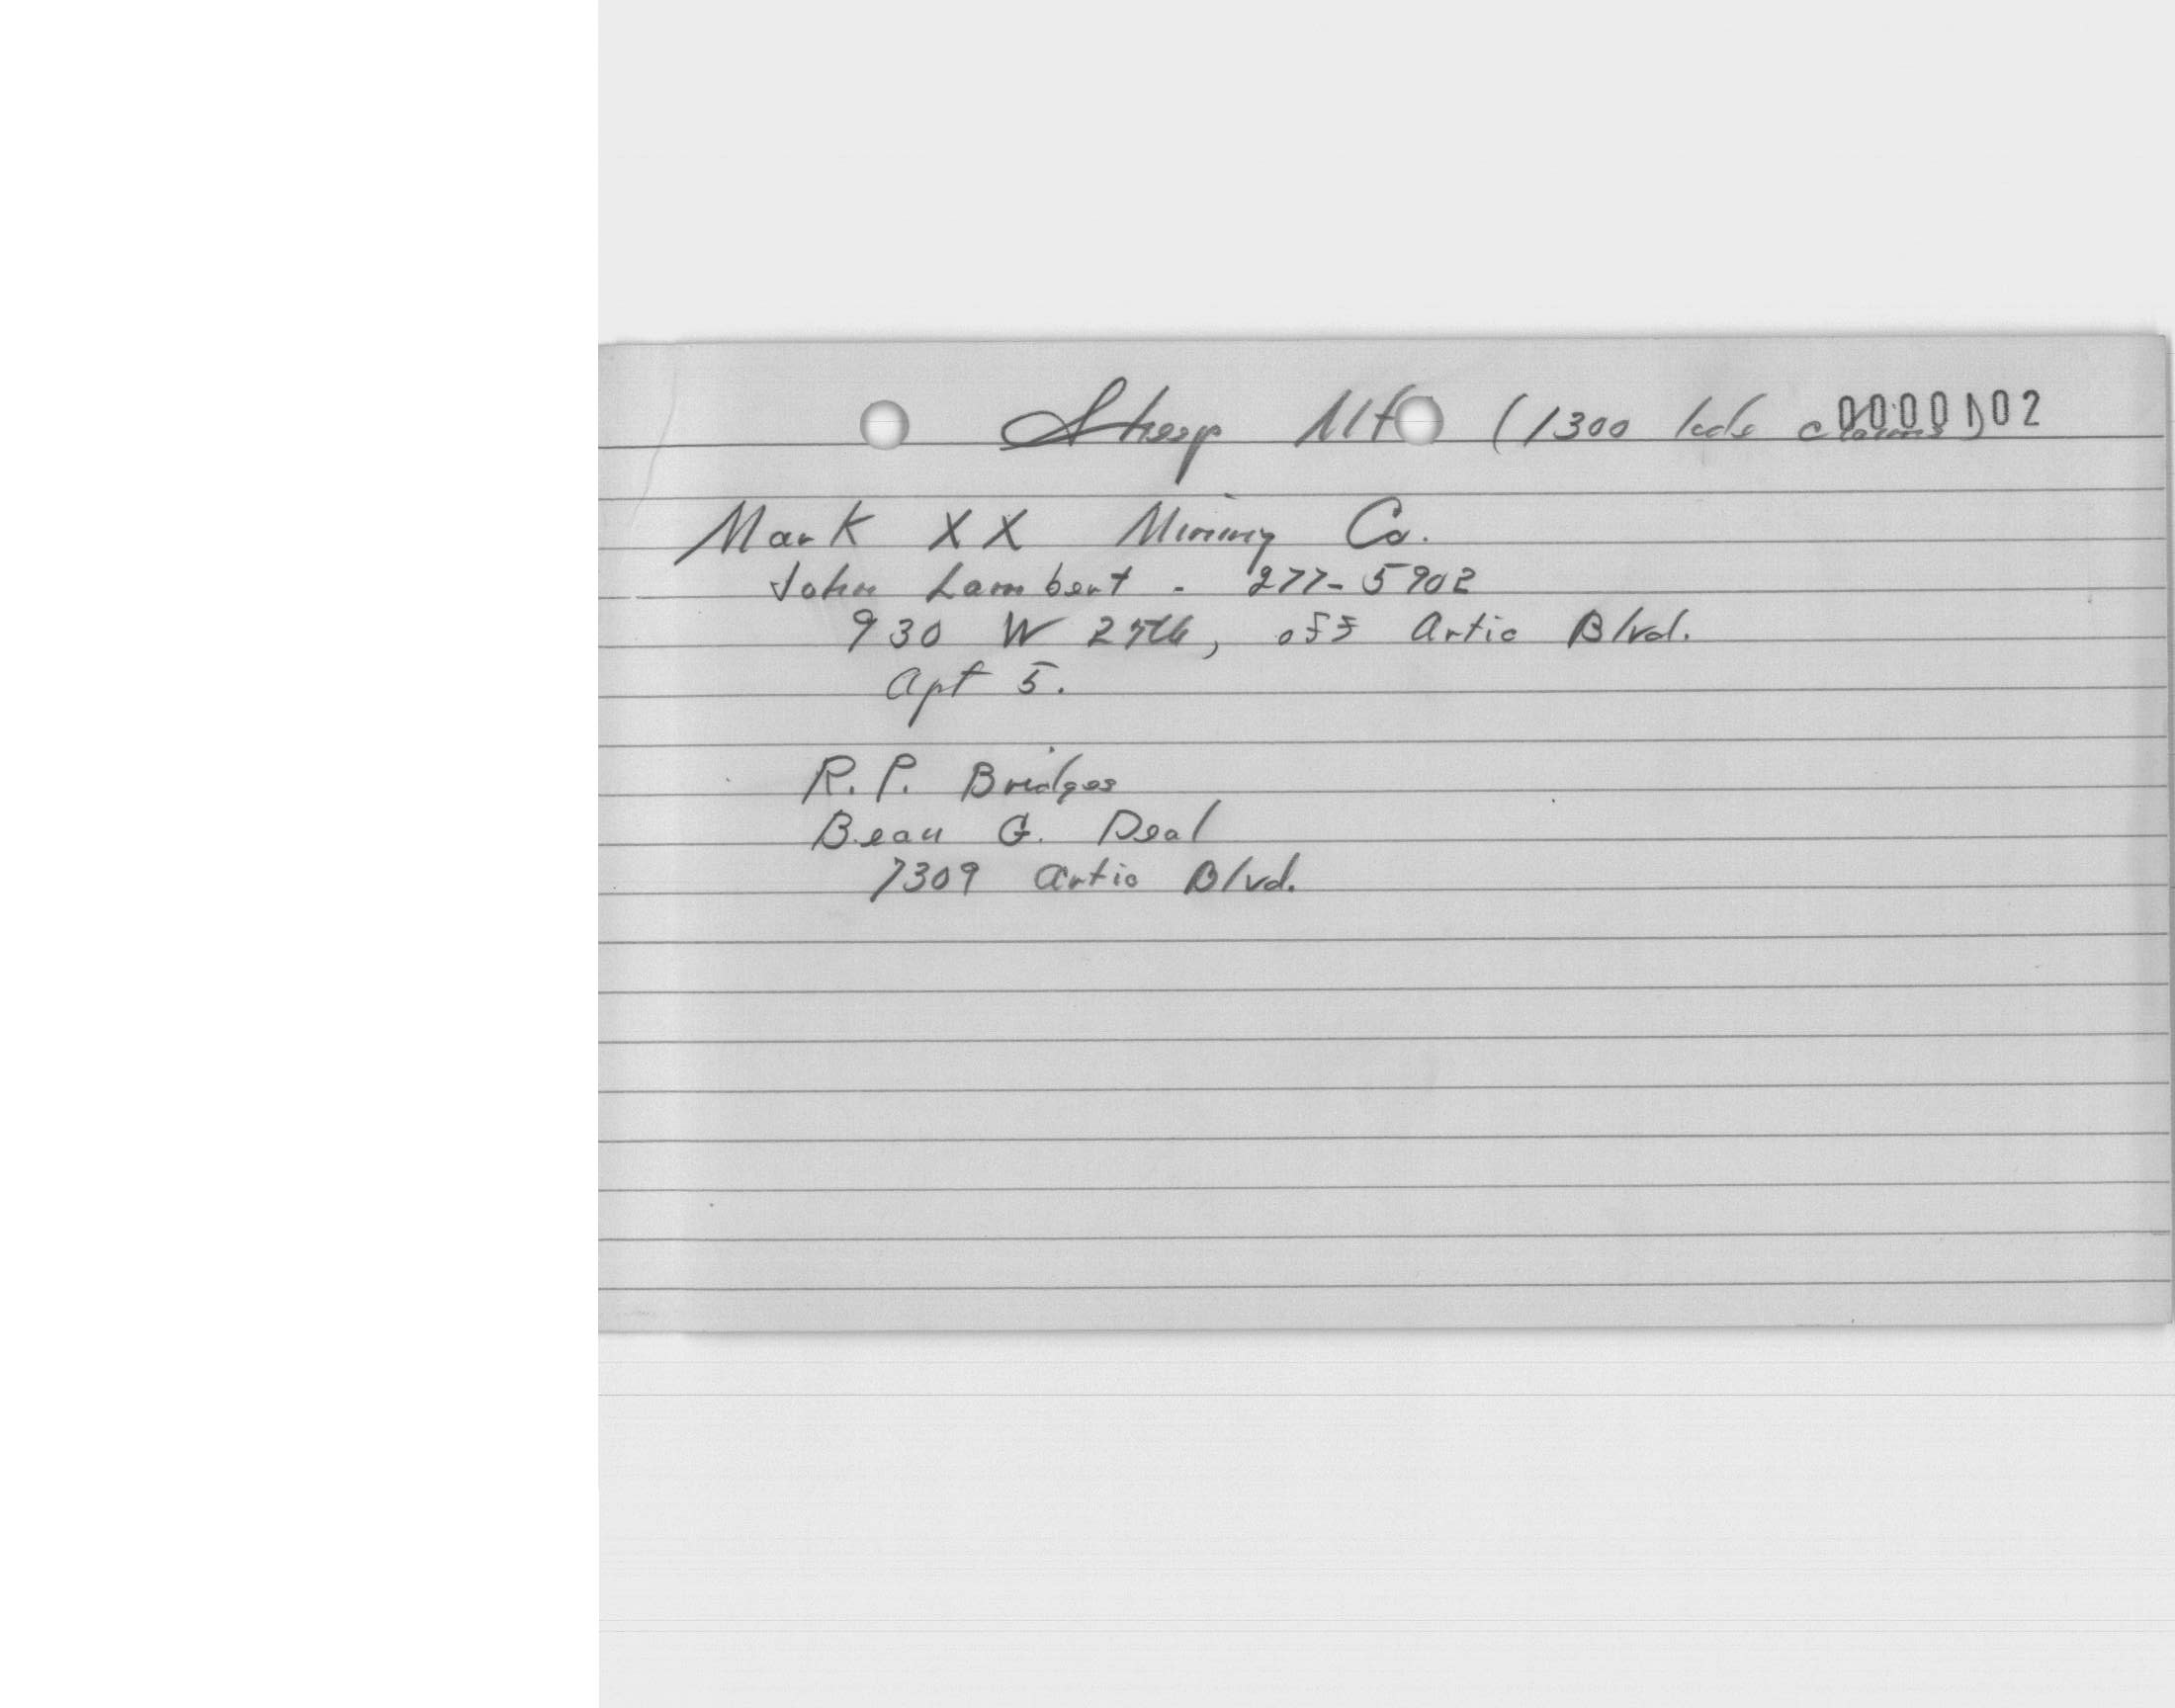 Sheep Mt (1300 lode claims) 0000102
Mark XX Mining Co.
John Lambert - 277-5902
930 W 25th, off Artic Blvd.
Apt 5.
R.P. Bridges
Beau G. Deal
7309 Artic Blvd.